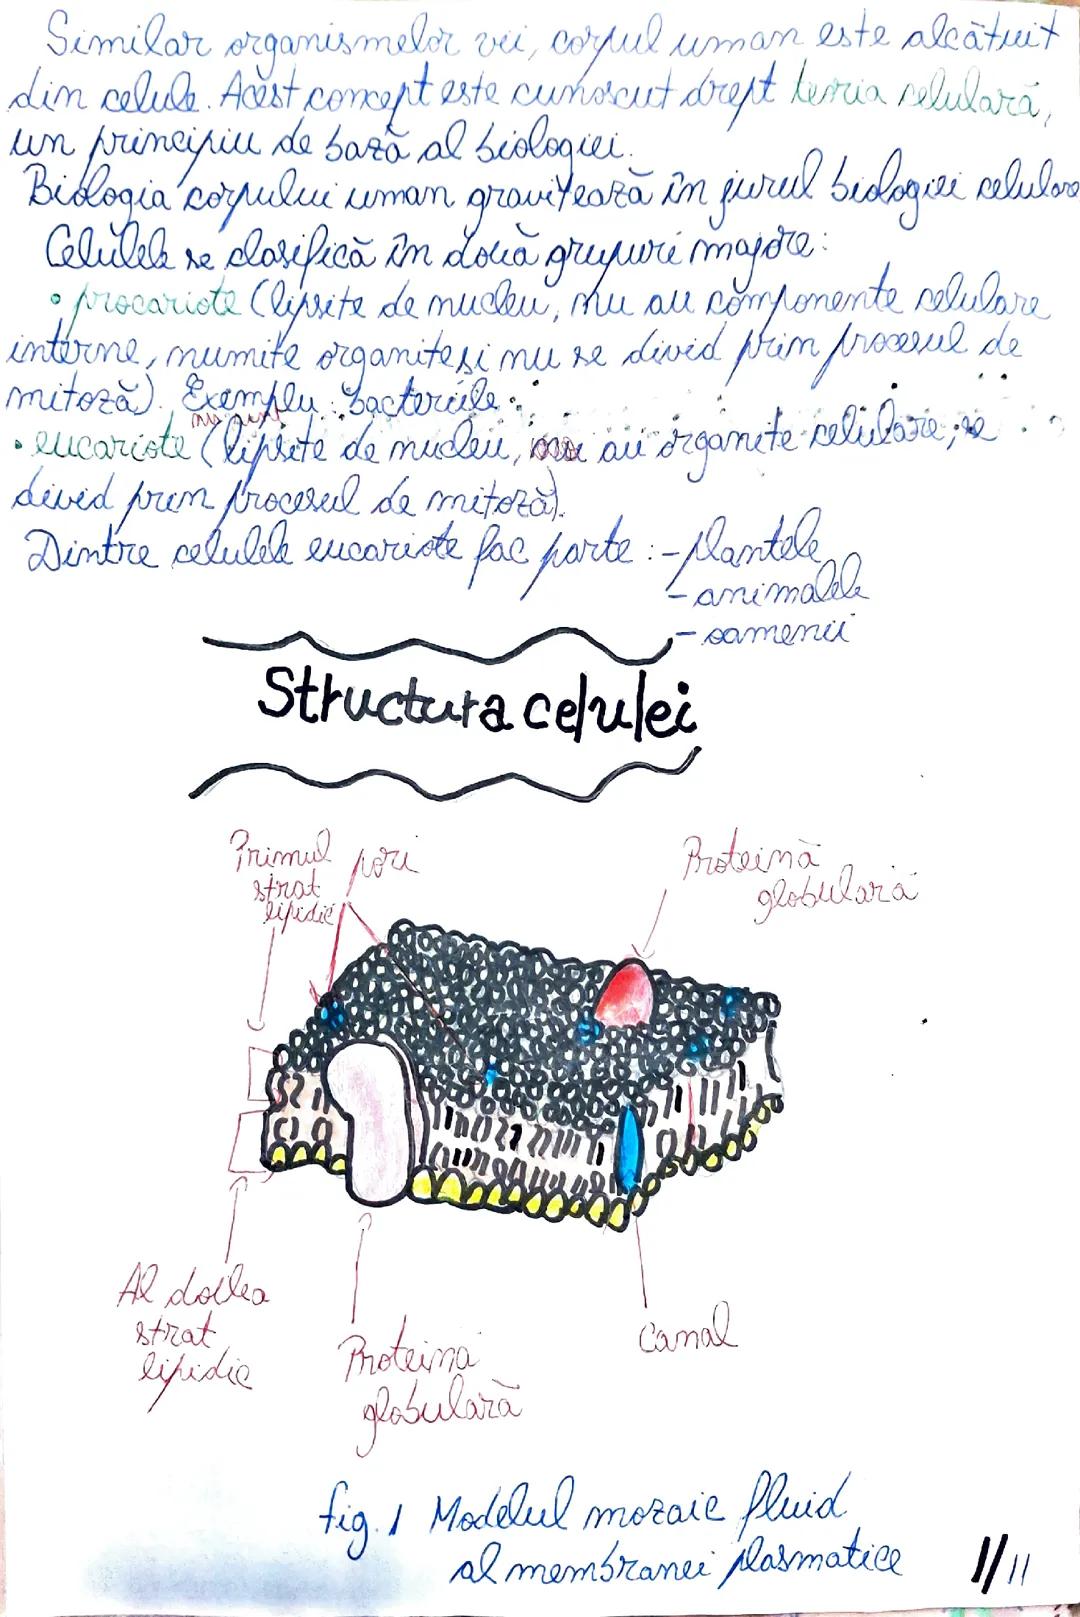 Similar organismelor vii, corpul uman este alcătuit
din celule. Acest concept este cunoscut drept teoria celulară,
un principiu de bază al biologiei.
Biologia corpului uman gravitează în jurul biologiei celulare
Celulele se clasifică în două grupuri majore:
• procariote (lipsite de nucleu, nu au componente celulare
interne, numite organite și nu se divid prin procesul de
mitoză). Exemplu: bacteriile.
nu sunt
• eucariote (lipsite de nucleu, au organite celulare, se
divid prin procesul de mitoză).
Dintre celulele eucariote fac parte: - plantele
- animalele
- oamenii
Structura celulei
Primul
strat
lipidic
pori
Proteină
globulară
Al doilea
strat
lipidic
Proteină
globulară
Canal
fig. 1 Modelul mozaic fluid
al membranei plasmatice
11